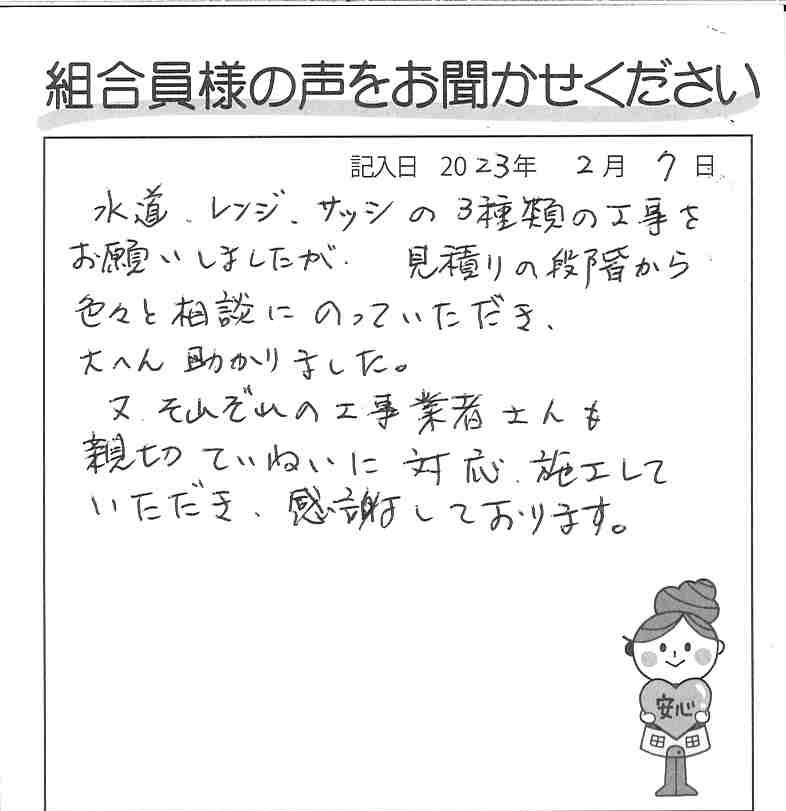 組合員様の声をお聞かせください
記入日 2023年 2月 7日
水道、レンジ、サッシの3種類の工事を
お願いしましたが、見積りの段階から
色々と相談にのっていただき、
大へん助かりました。
又、それぞれの工事業者さんも
親切ていねいに対応、施工して
いただき、感謝しております。
安心